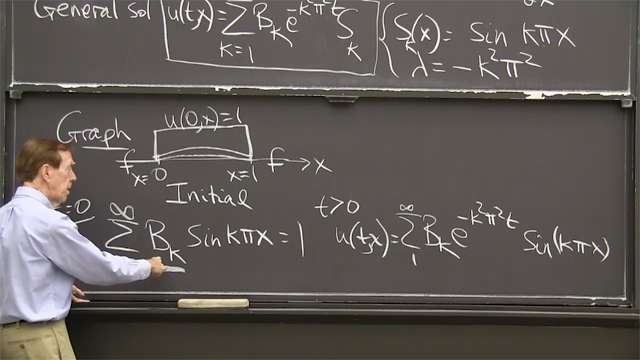 General Sol u(t,x) = ∑ k=1 ∞ B_k e^{-k²π²t} S_k
S_k(x) = Sin kπx
λ = -k²π²
Graph
u(0,x)=1
f x=0 x=1 f → x
Initial
=0 ∑^∞ B_k Sin kπx = 1
t>0
u(t,x) = ∑_1^∞ B_k e^{-k²π²t} Sin(kπx)